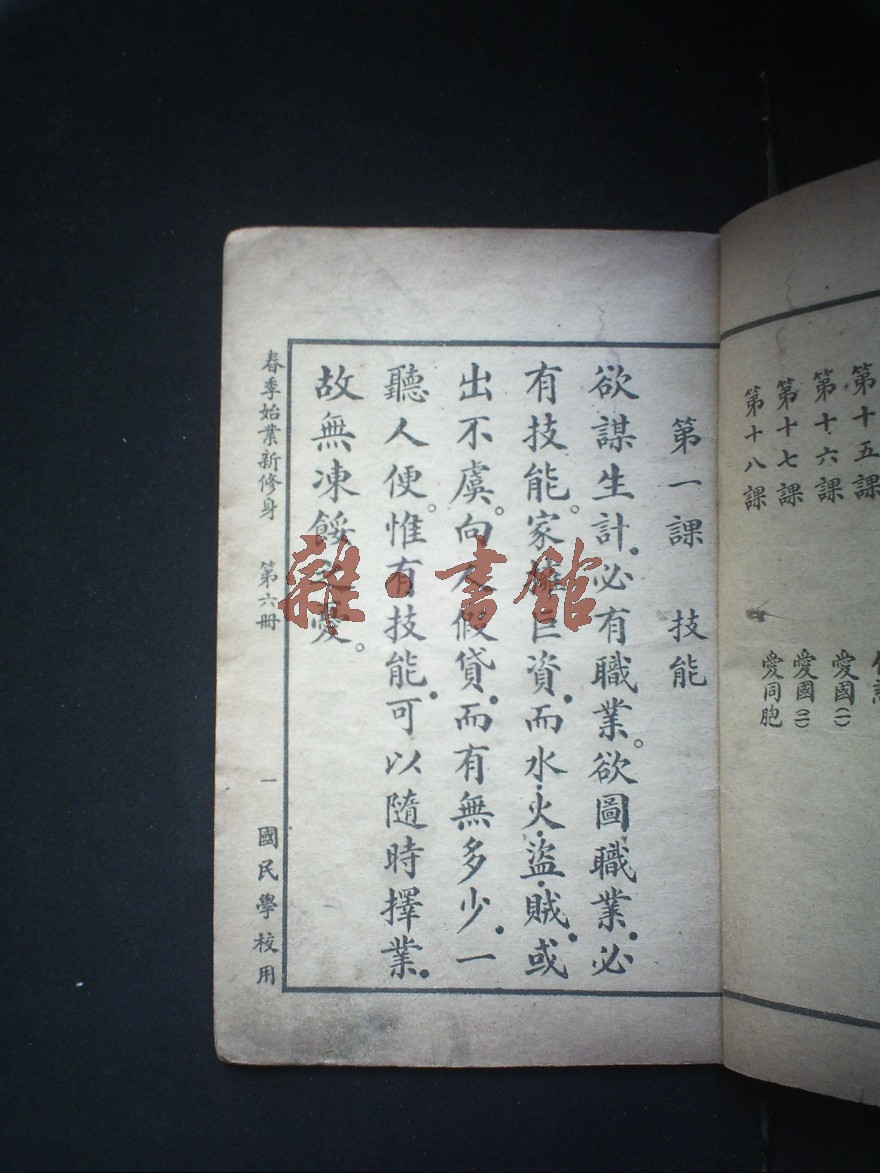 第十五課
第十六課 愛國(一)
第十七課 愛國(二)
第十八課 愛同胞
第一課 技能
欲謀生計.必有職業。欲圖職業.必
有技能。家擁巨資.而水.火.盜.賊.或
出不虞。向人假貸.而有無多少.一
聽人便。惟有技能.可以隨時擇業.
故無凍餒之憂。
春季始業新修身 第六冊 一 國民學校用
雜·書館